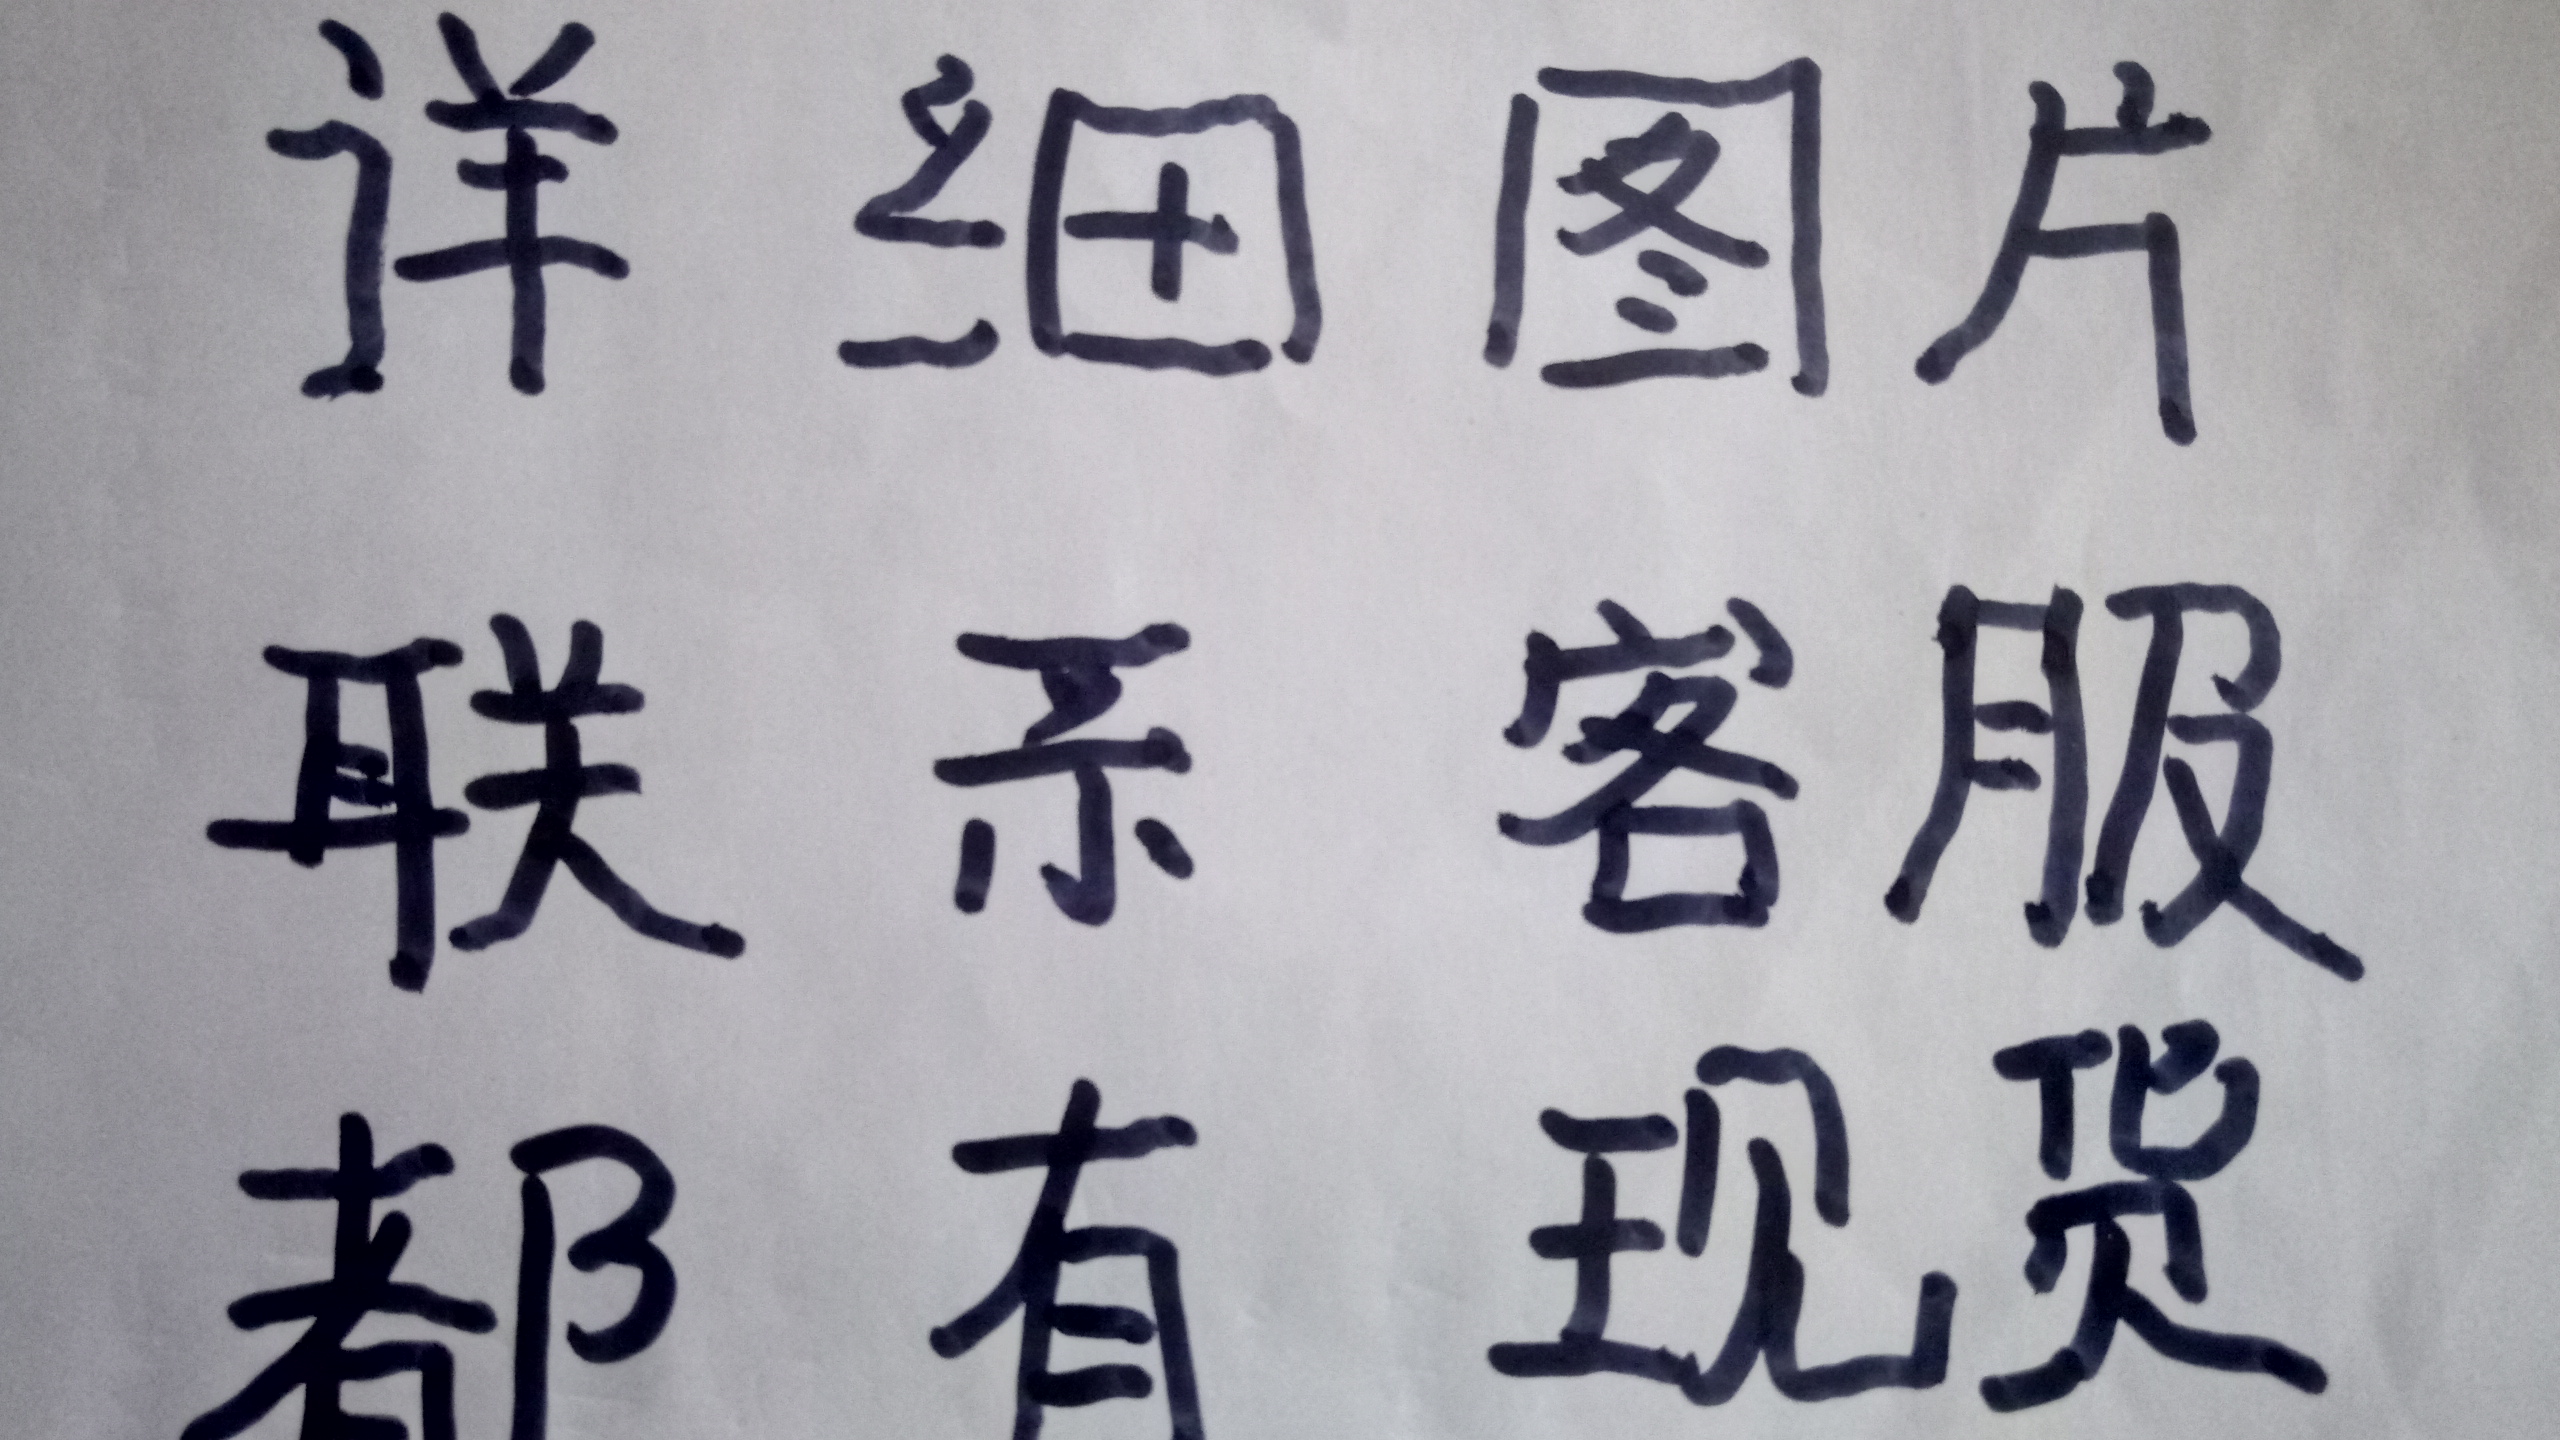 详细图片
联系客服
都有现货